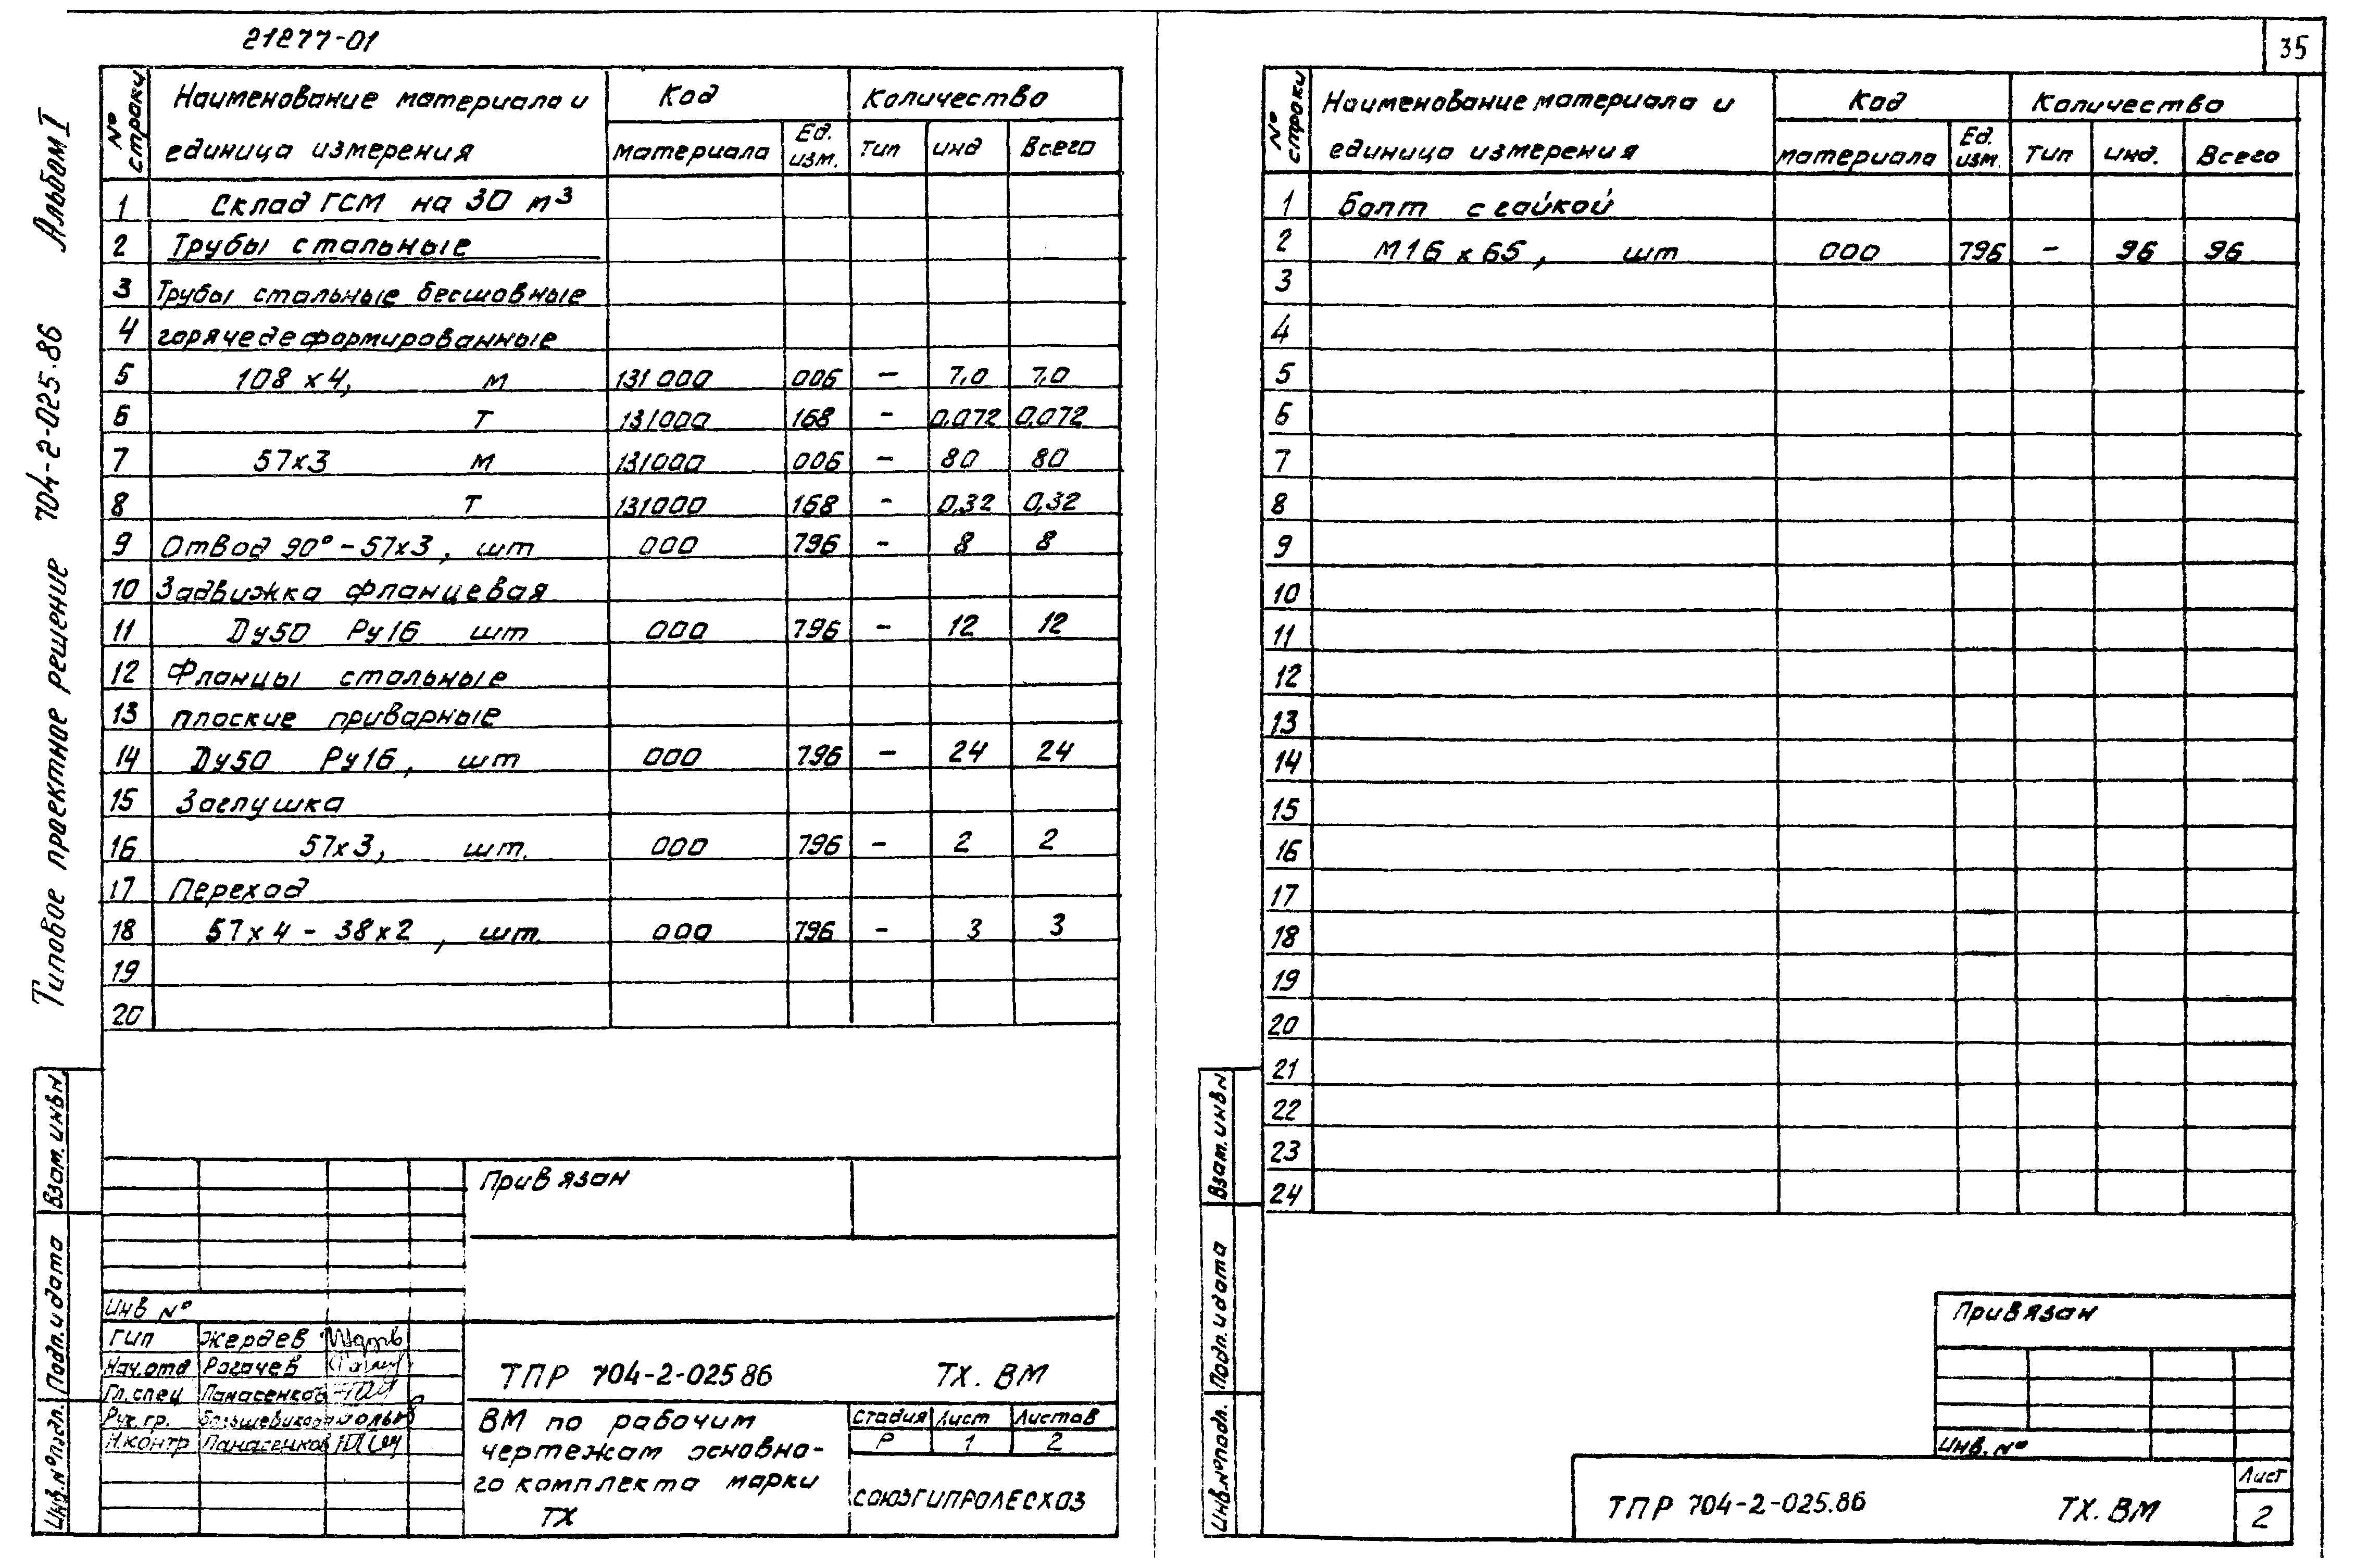 21277-01
35
Альбом I
Типовое проектное решение 704-2-025.86
№ строки
Наименование материала и
единица измерения
Код
материала
Ед. изм.
Количество
тип
инд
Всего
1 Склад ГСМ на 30 м³
2 Трубы стальные
3 Трубы стальные бесшовные
4 горячедеформированные
5 108 х 4, м 131000 006 – 7,0 7,0
6 т 131000 168 – 0,072 0,072
7 57х3 м 131000 006 – 80 80
8 т 131000 168 – 0,32 0,32
9 Отвод 90° – 57х3, шт 000 796 – 8 8
10 Задвижка фланцевая
11 Ду50 Ру16 шт 000 796 – 12 12
12 Фланцы стальные
13 плоские приварные
14 Ду50 Ру16, шт 000 796 – 24 24
15 Заглушка
16 57х3, шт. 000 796 – 2 2
17 Переход
18 57х4 – 38х2, шт. 000 796 – 3 3
19
20
Взам. инв №
Подп. и дата
Инв. № подл.
Привязан
Инв №
ГИП Жердев
Нач.отд Рогачев
Гл.спец Панасенков
Рук. гр.
Н.контр Панасенков
ТПР 704-2-025 86 ТХ. ВМ
ВМ по рабочим
чертежам основно-
го комплекта марки
ТХ
Стадия Лист Листов
Р 1 2
СОЮЗГИПРОЛЕСХОЗ
№ строки
Наименование материала и
единица измерения
Код
материала
Ед. изм.
Количество
тип
инд.
Всего
1 Болт с гайкой
2 М16 х 65, шт 000 796 – 96 96
3
4
5
6
7
8
9
10
11
12
13
14
15
16
17
18
19
20
21
22
23
24
Взам. инв №
Подп. и дата
Инв. № подл.
Привязан
Инв. №
ТПР 704-2-025.86 ТХ. ВМ
Лист
2